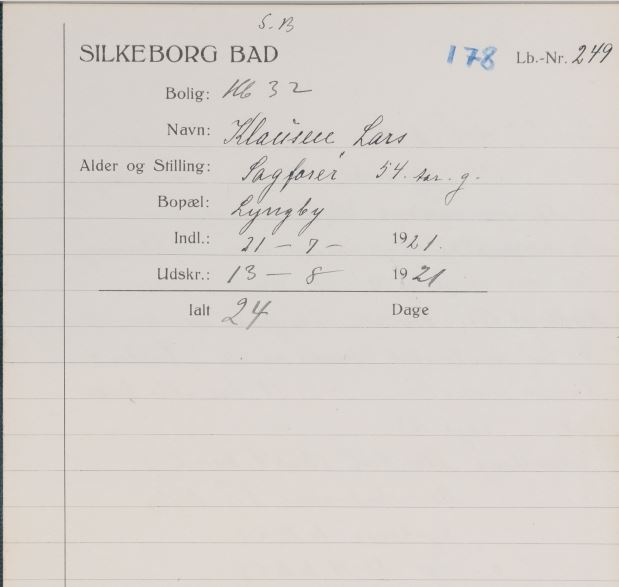 S.B
SILKEBORG BAD 178 Lb.-Nr. 249
Bolig: Hb 32
Navn: Klausen, Lars
Alder og Stilling: Sagfører 54. aar. g.
Bopæl: Lyngby
Indl.: 21 - 7 - 1921.
Udskr.: 13 - 8 1921
Ialt 24 Dage